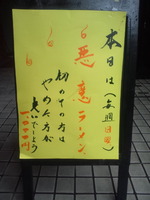 本日は(毎週日曜)
悪魔ラーメン
初めての方は
やめた方が
良いでしょう